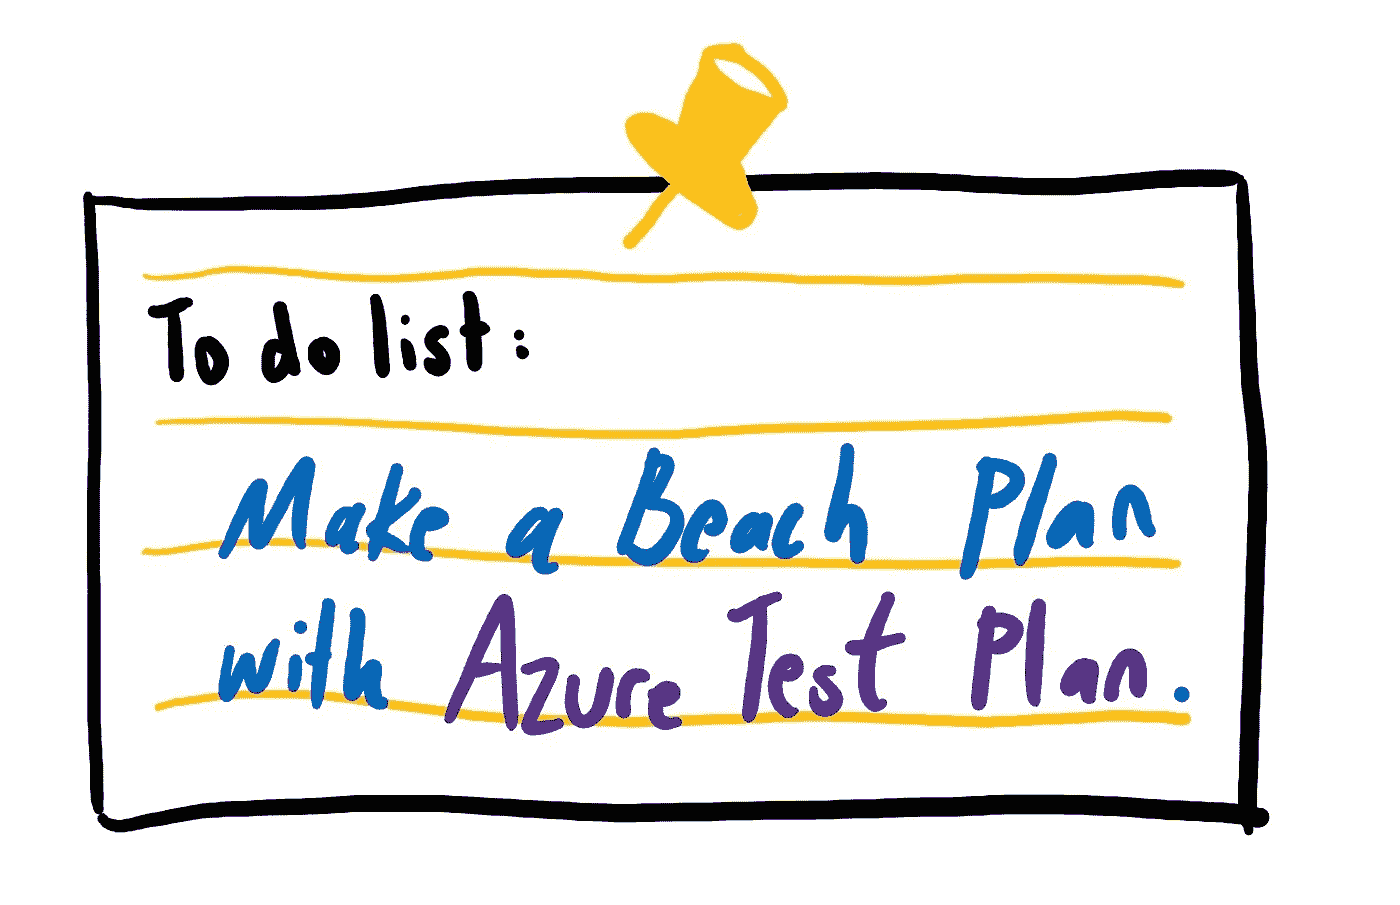 To do list:
Make a Beach Plan
with Azure Test Plan.